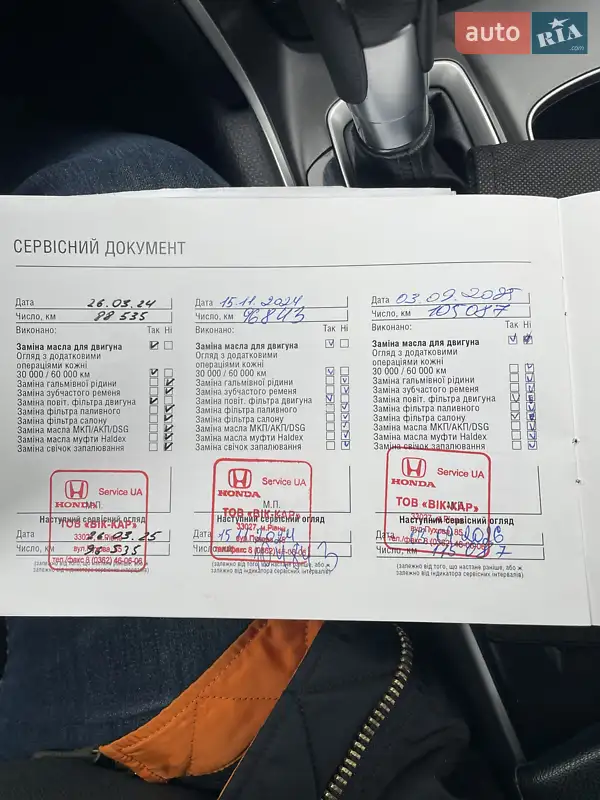 auto RIA .com
СЕРВІСНИЙ ДОКУМЕНТ
Дата 26.03.24
Число, км 88 535
Виконано: Так Ні
Заміна масла для двигуна
Огляд з додатковими
операціями кожні
30 000 / 60 000 км
Заміна гальмівної рідини
Заміна зубчастого ременя
Заміна повіт. фільтра двигуна
Заміна фільтра паливного
Заміна фільтра салону
Заміна масла МКП/АКП/DSG
Заміна масла муфти Haldex
Заміна свічок запалювання
HONDA Service UA
М.П.
ТОВ «ВІК-КАР»
Наступний сервісний огляд
33027, м.Рівне
Дата 26.03.25
Число, км 98 535
тел./факс 8 (0362) 46-06-06
(залежно від того, що настане раніше, або ж
залежно від індикатора сервісних інтервалів)
Дата 15.11.2024
Число, км 96843
Виконано: Так Ні
Заміна масла для двигуна
Огляд з додатковими
операціями кожні
30 000 / 60 000 км
Заміна гальмівної рідини
Заміна зубчастого ременя
Заміна повіт. фільтра двигуна
Заміна фільтра паливного
Заміна фільтра салону
Заміна масла МКП/АКП/DSG
Заміна масла муфти Haldex
Заміна свічок запалювання
HONDA Service UA
М.П.
ТОВ «ВІК-КАР»
Наступний сервісний огляд
33027, м.Рівне
Дата
Число, км
тел./факс 8 (0362) 46-06-06
(залежно від того, що настане раніше, або ж
залежно від індикатора сервісних інтервалів)
Дата 03.09.2025
Число, км 105087
Виконано: Так Ні
Заміна масла для двигуна
Огляд з додатковими
операціями кожні
30 000 / 60 000 км
Заміна гальмівної рідини
Заміна зубчастого ременя
Заміна повіт. фільтра двигуна
Заміна фільтра паливного
Заміна фільтра салону
Заміна масла МКП/АКП/DSG
Заміна масла муфти Haldex
Заміна свічок запалювання
HONDA Service UA
ТОВ «ВІК-КАР»
33027, м.Рівне
Наступний сервісний огляд
Дата
тел./факс 8 (0362) 46-06-06
Число, км 115087
(залежно від того, що настане раніше, або ж
залежно від індикатора сервісних інтервалів)